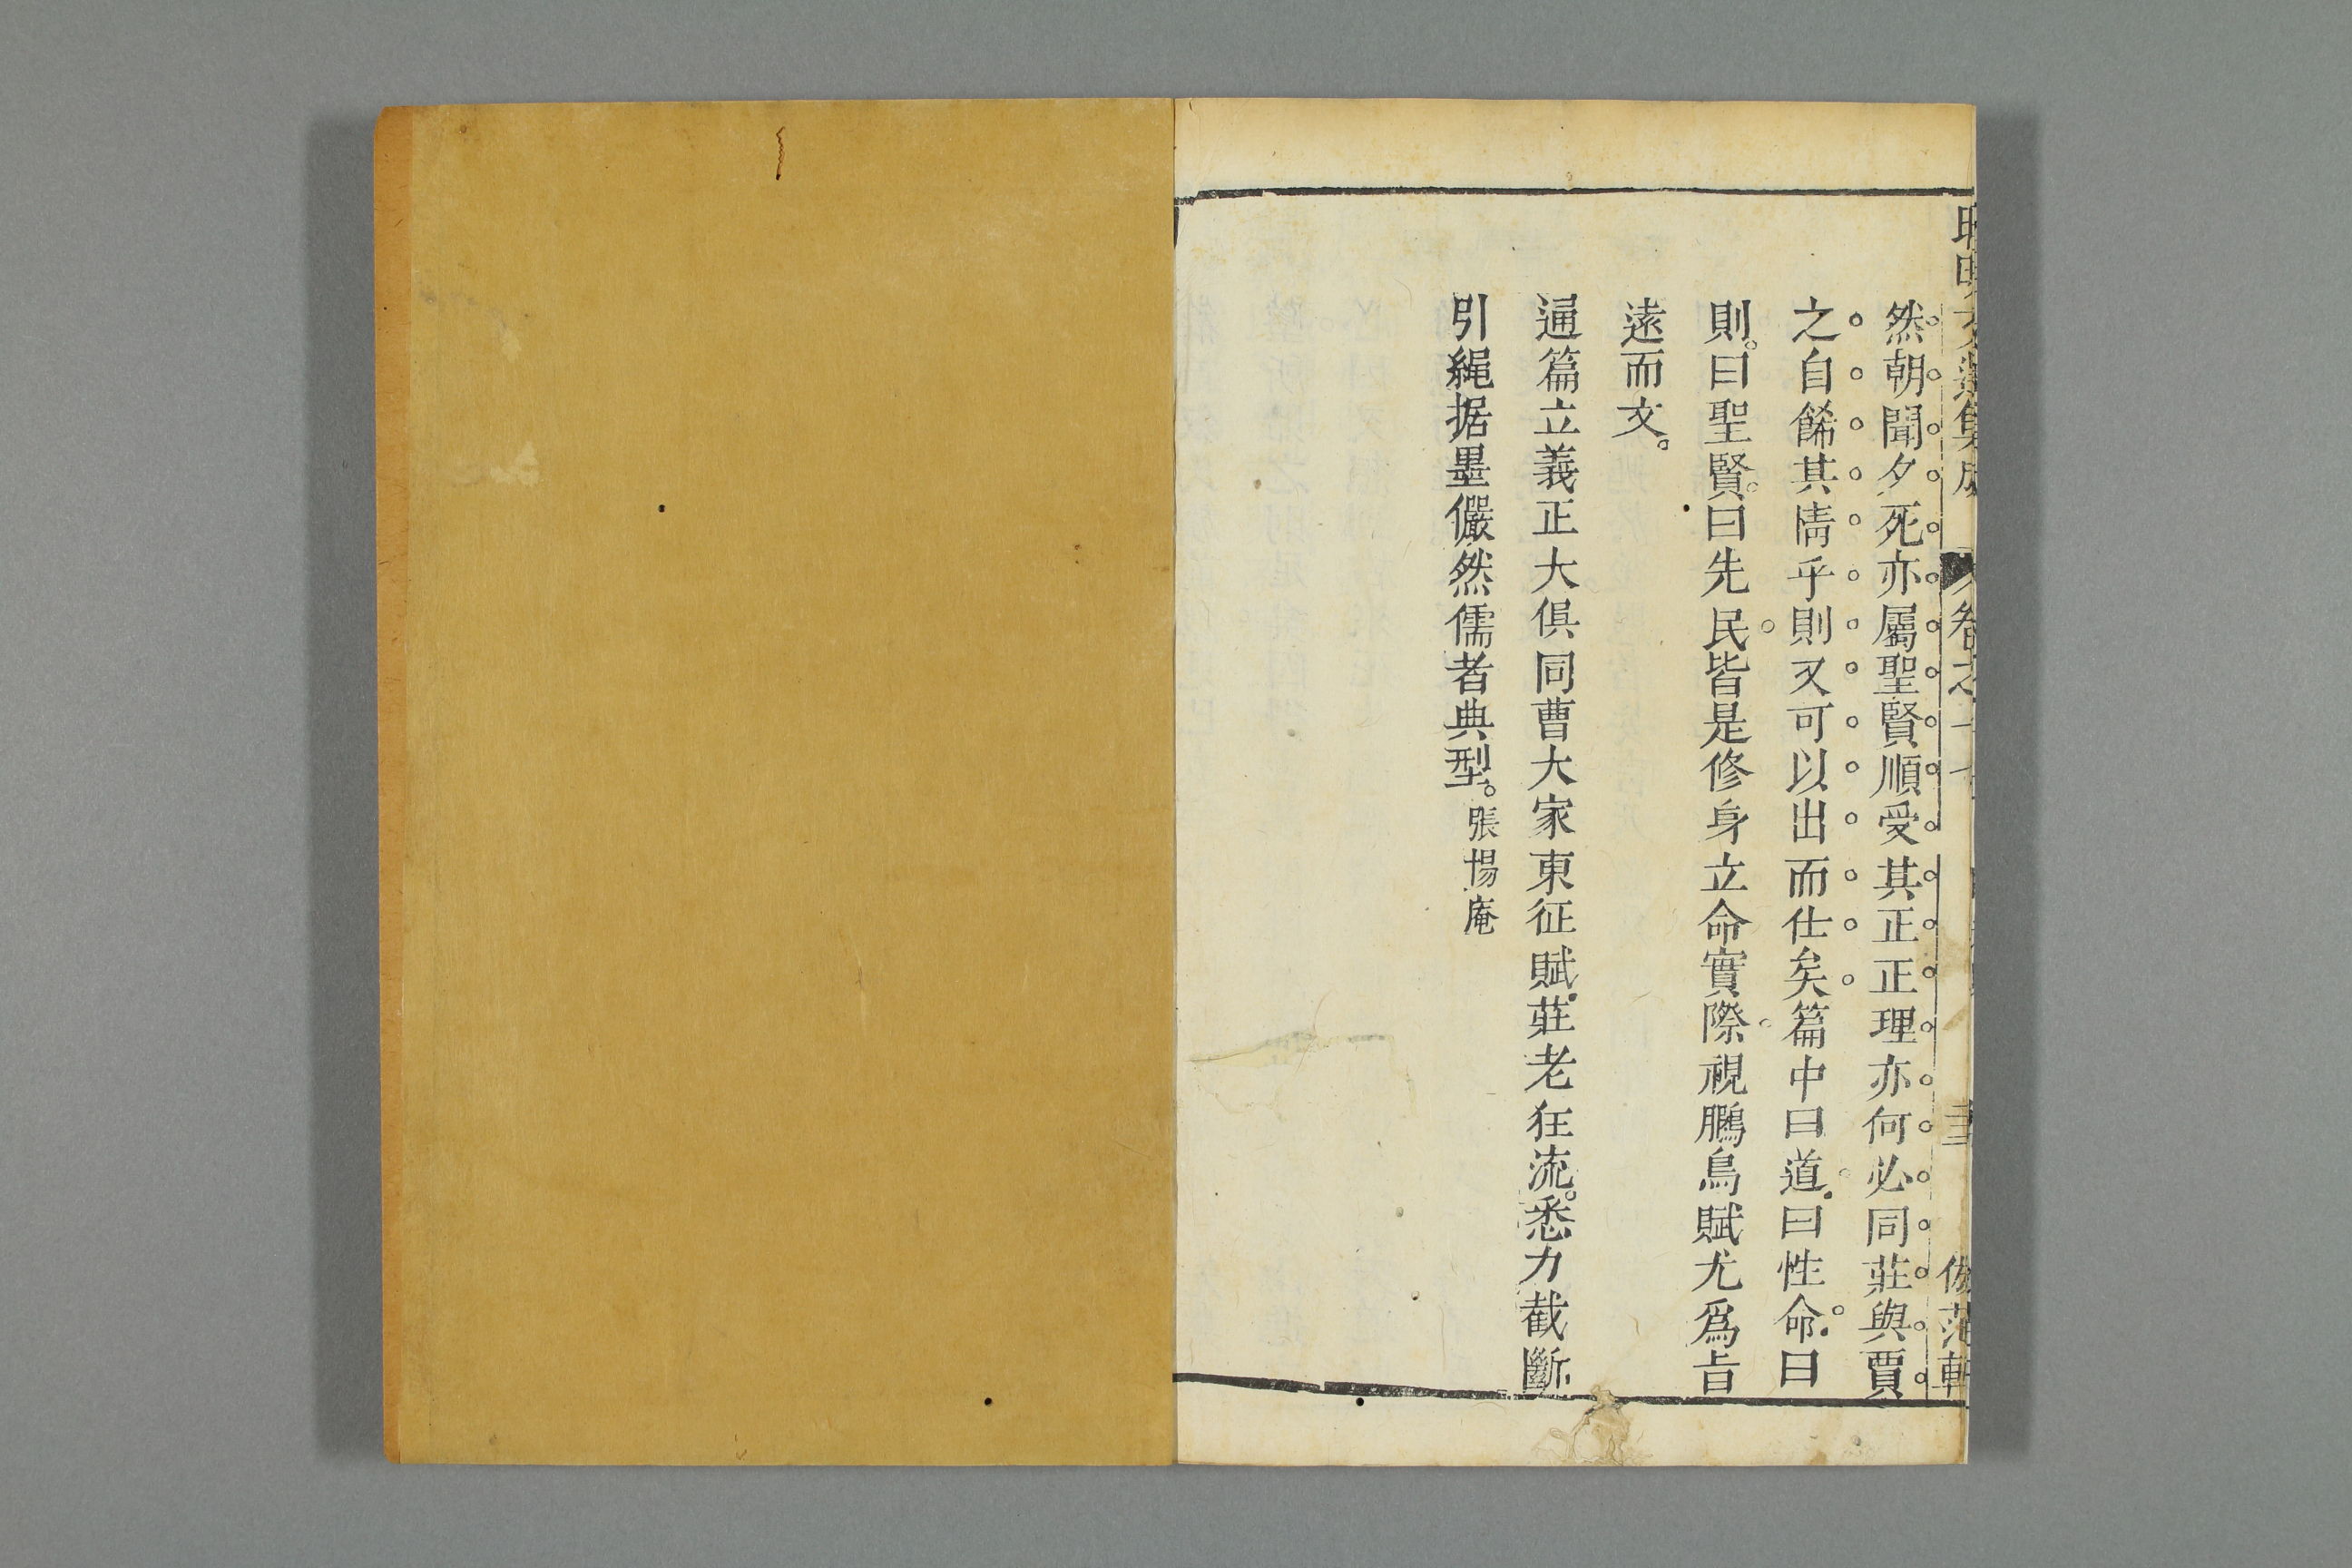 然朝聞夕死亦屬聖賢順受其正正理亦何必同莊與賈
之自餙其情乎則又可以出而仕矣篇中曰道曰性命曰
則曰聖賢曰先民皆是修身立命實際視鵩鳥賦尤爲旨
遠而文
通篇立義正大俱同曹大家東征賦莊老狂流悉力截斷
引繩据墨儼然儒者典型張惕庵